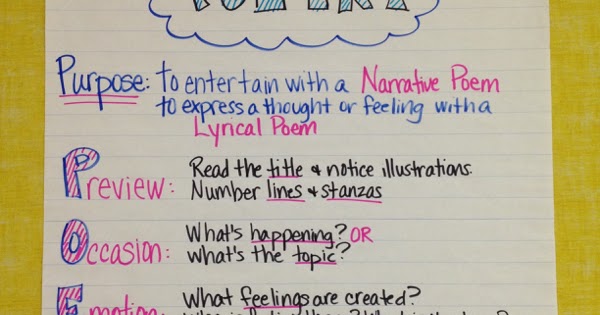 POETRY
Purpose: to entertain with a Narrative Poem
to express a thought or feeling with a
Lyrical Poem
Preview: Read the title & notice illustrations.
Number lines & stanzas
Occasion: What's happening? OR
what's the topic?
Emotion: What feelings are created?